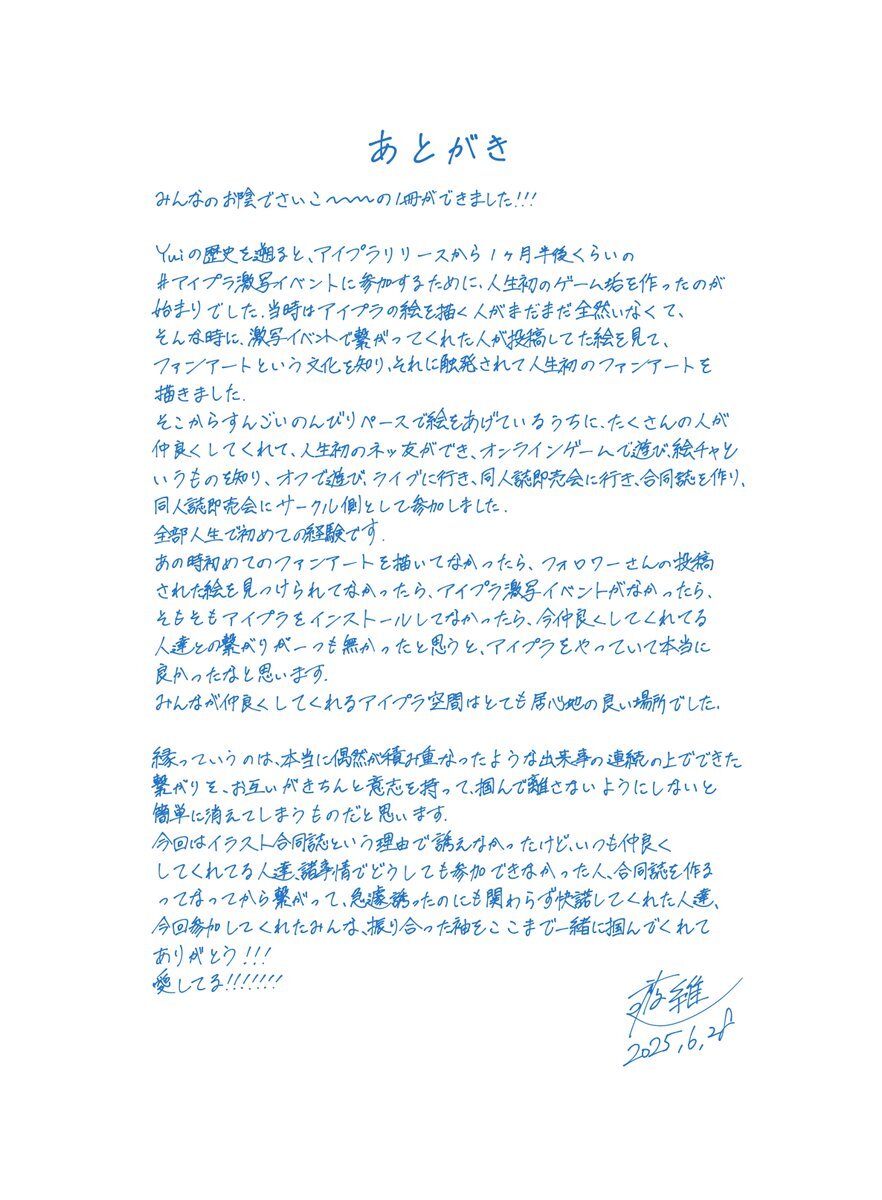 あとがき
みんなのお陰でさいこ〜〜〜の1冊ができました!!!
Yuiの歴史を遡ると、アイプラリリースから1ヶ月半後くらいの
#アイプラ激写イベントに参加するために、人生初のゲーム垢を作ったのが
始まりでした.当時はアイプラの絵を描く人がまだまだ全然いなくて、
そんな時に、激写イベントで繋がってくれた人が投稿してた絵を見て、
ファンアートという文化を知り、それに触発されて人生初のファンアートを
描きました.
そこからすんごいのんびりペースで絵をあげているうちに、たくさんの人が
仲良くしてくれて、人生初のネッ友ができ、オンラインゲームで遊び、絵チャと
いうものを知り、オフで遊び、ライブに行き、同人誌即売会に行き、合同誌を作り、
同人誌即売会にサークル側として参加しました.
全部人生で初めての経験です.
あの時初めてのファンアートを描いてなかったら、フォロワーさんの投稿
された絵を見つけられてなかったら、アイプラ激写イベントがなかったら、
そもそもアイプラをインストールしてなかったら、今仲良くしてくれてる
人達との繋がりが一つも無かったと思うと、アイプラをやっていて本当に
良かったなと思います.
みんなが仲良くしてくれるアイプラ空間はとても居心地の良い場所でした.
縁っていうのは、本当に偶然が積み重なったような出来事の連続の上でできた
繋がりを、お互いがきちんと意志を持って、掴んで離さないようにしないと
簡単に消えてしまうものだと思います.
今回はイラスト合同誌という理由で誘えなかったけど、いつも仲良く
してくれてる人達、諸事情でどうしても参加できなかった人、合同誌を作る
ってなってから繋がって、急遽誘ったのにも関わらず快諾してくれた人達、
今回参加してくれたみんな、振り合った袖をここまで一緒に掴んでくれて
ありがとう!!!
愛してる!!!!!!!
維
2025,6,28